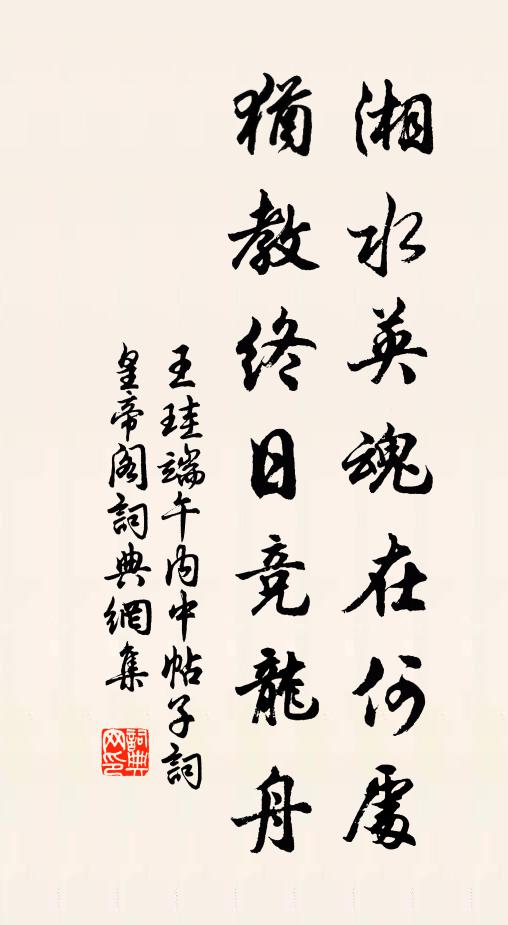 湘水英魂在何處
猶教終日競龍舟
王珪端午內中帖子詞
皇帝閣詞典網集
詞典網印